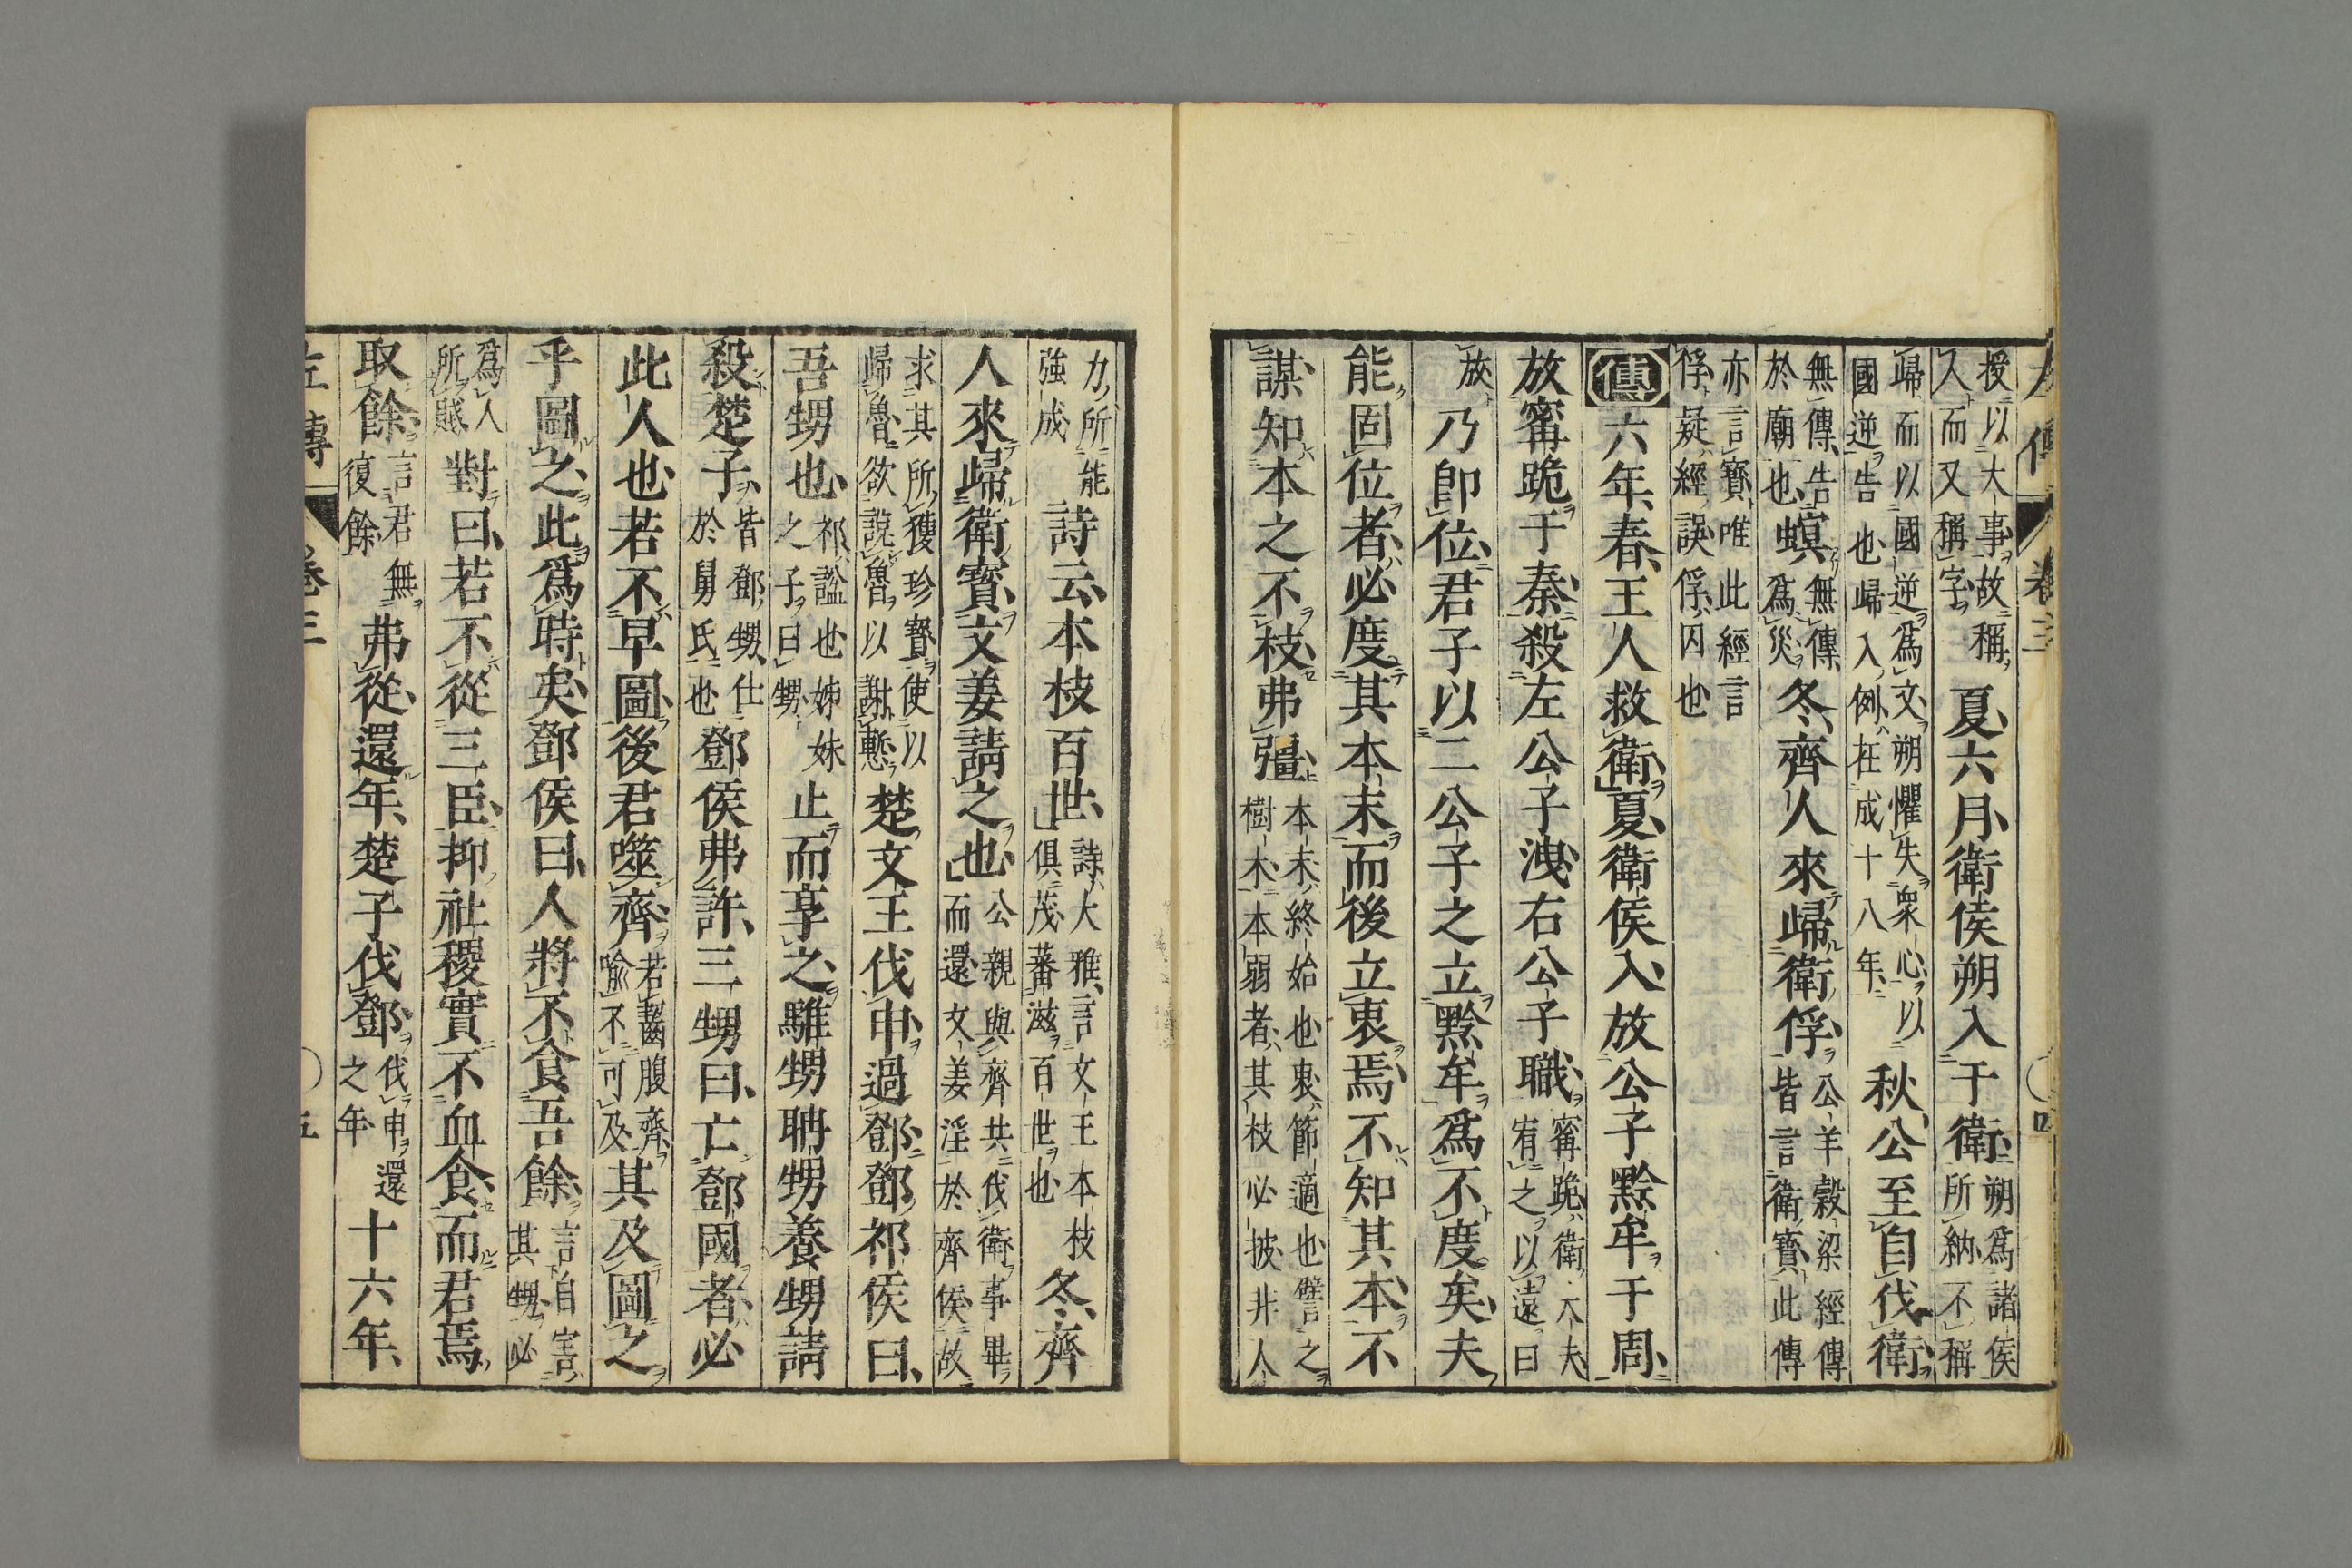 授以大事故稱
人而又稱字
夏六月衛侯朔入于衛
朔爲諸侯
所納不稱
歸而以國逆爲文朔懼失衆心以
國逆告也歸入例在成十八年
秋公至自伐衛
無傳告
於廟也
螟
無傳
爲災
冬齊人來歸衛俘
公羊穀梁經傳
皆言衛寳此傳
亦言寳唯此經言
俘疑經誤俘囚也
傳六年春王人救衛夏衛侯入放公子黔牟于周
放甯跪于秦殺左公子洩右公子職
甯跪衛大夫
宥之以遠曰
放
乃卽位君子以二公子之立黔牟爲不度矣夫
能固位者必度其本末而後立衷焉不知其本不
謀知本之不枝弗彊
本末終始也衷節適也譬之
樹木本弱者其枝必披非人
力所能
強成
詩云本枝百世
詩大雅言文王本枝
俱茂蕃滋百世也
冬齊
人來歸衛寳文姜請之也
公親與齊共伐衛事畢
而還文姜淫於齊侯故
求其所獲珍寳使以
歸魯欲說魯以謝慙
楚文王伐申過鄧鄧祁侯曰
吾甥也
祁謚也姊妹
之子曰甥
止而享之騅甥聃甥養甥請
殺楚子
皆鄧甥仕
於舅氏也
鄧侯弗許三甥曰亡鄧國者必
此人也若不早圖後君噬齊
若齧腹齊
喻不可及
其及圖之
乎圖之此爲時矣鄧侯曰人將不食吾餘
言自害
其甥必
爲人
所賤
對曰若不從三臣抑社稷實不血食而君焉
取餘
言君無
復餘
弗從還年楚子伐鄧
伐申還
之年
十六年
左傳
卷三
五